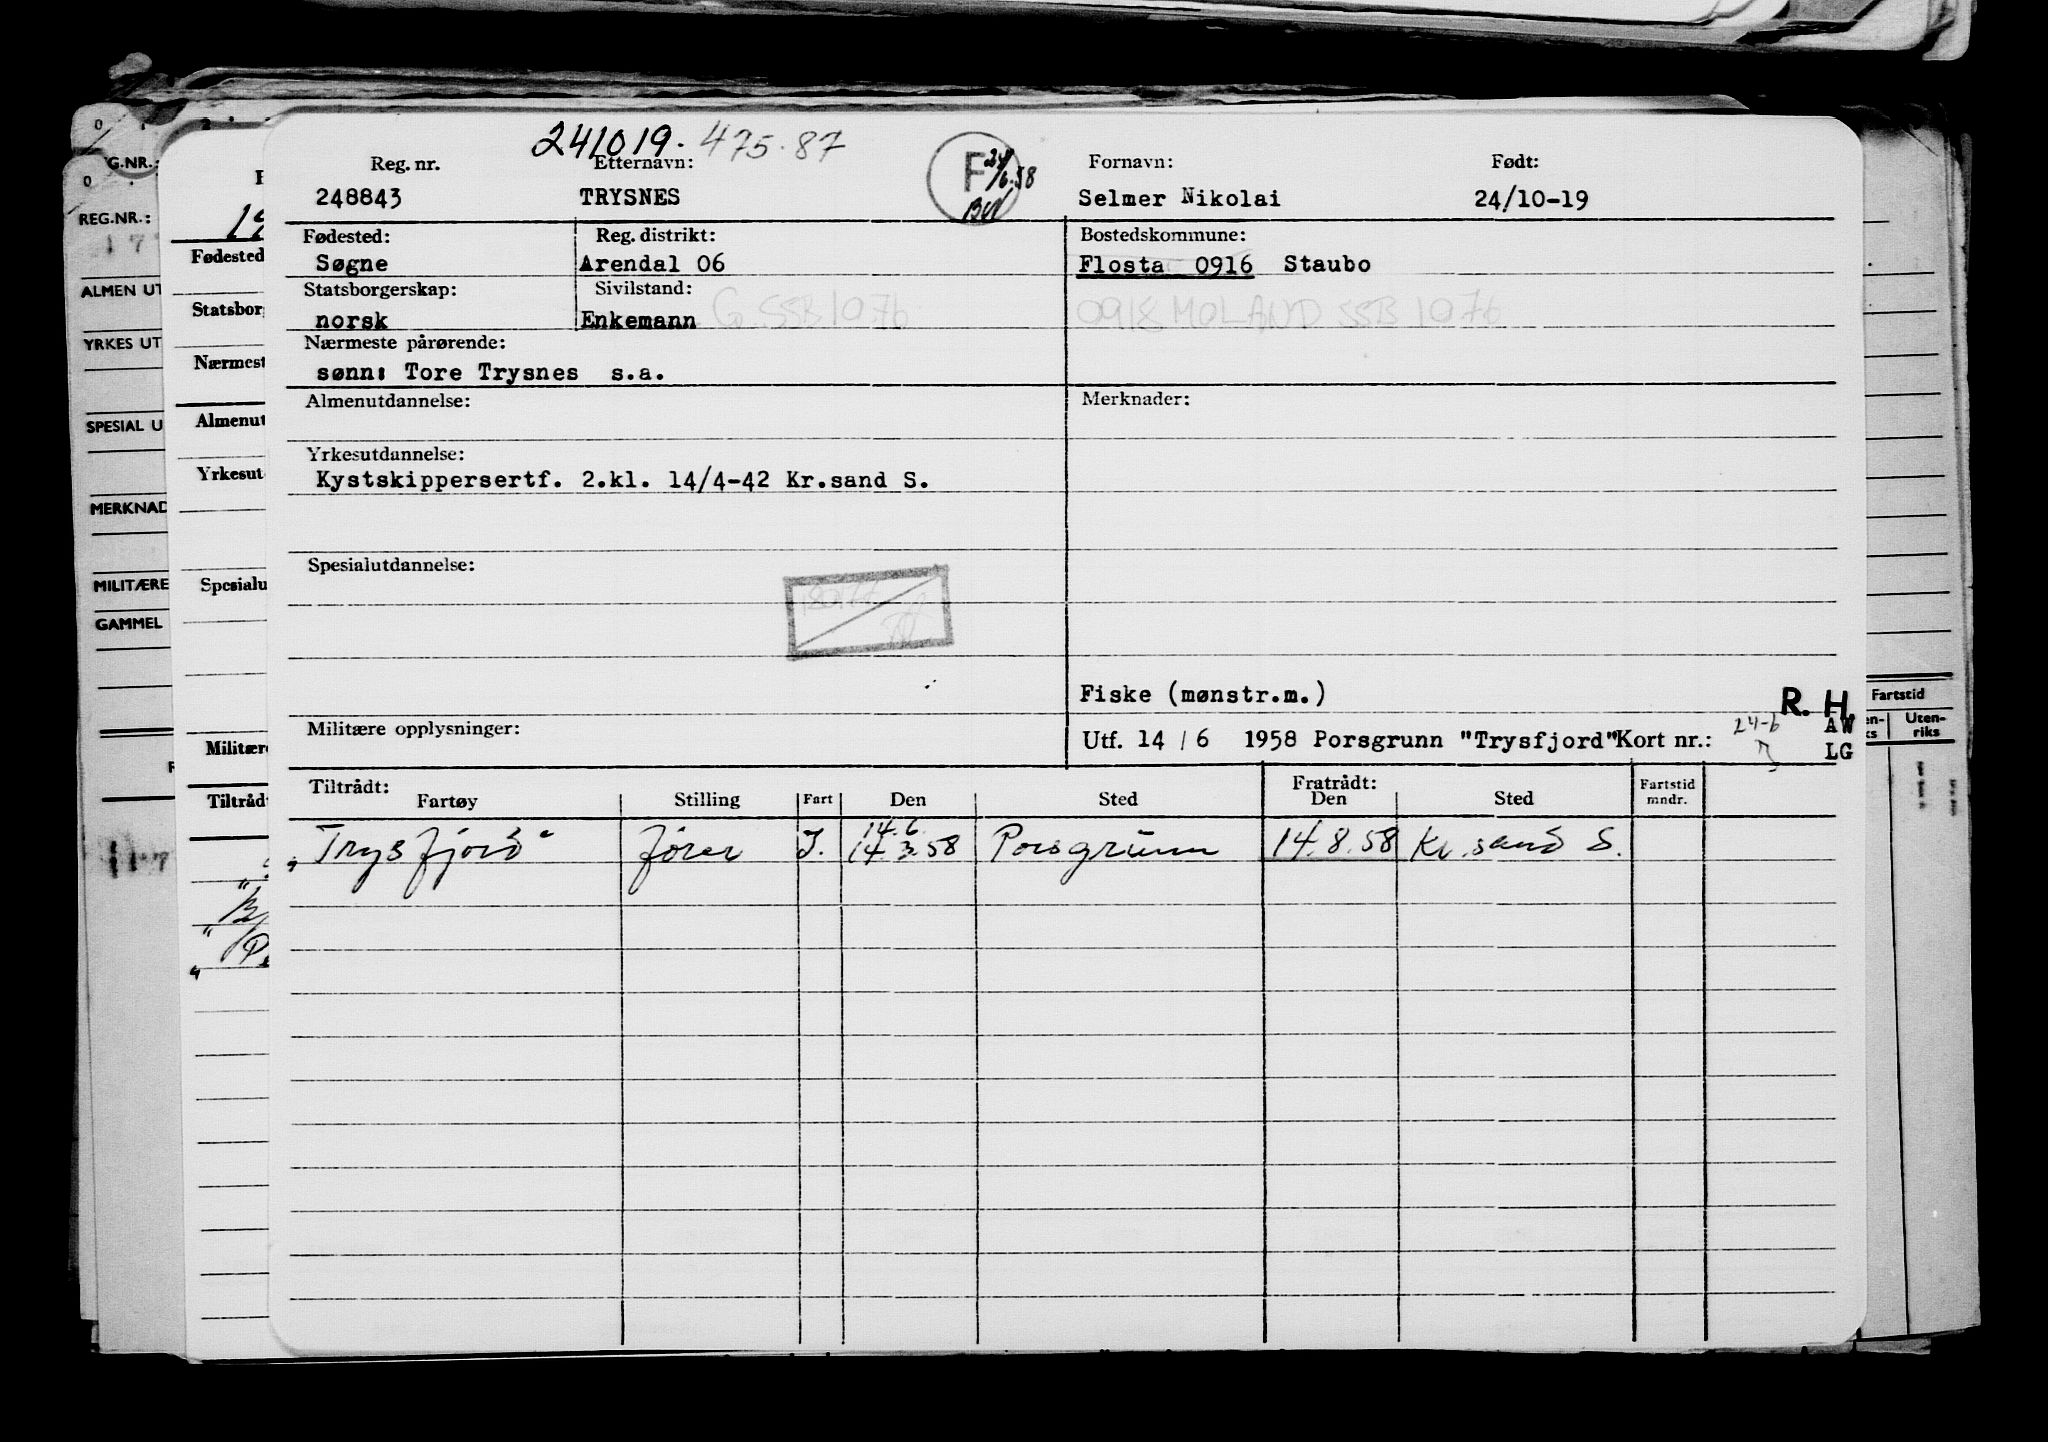 241019. 475.87
Reg. nr. Etternavn: F 24/6.58 Fornavn: Født:
248843 TRYSNES Selmer Nikolai 24/10-19
Fødested: Reg. distrikt: Bostedskommune:
Søgne Arendal 06 Flosta 0916 Staubo
Statsborgerskap: Sivilstand:
norsk Enkemann G SSB 1076 0918 MOLAND SSB 1076
Nærmeste pårørende:
sønn: Tore Trysnes s.a.
Almenutdannelse: Merknader:
Yrkesutdannelse:
Kystskippersertf. 2.kl. 14/4-42 Kr.sand S.
Spesialutdannelse:
Fiske (mønstr.m.)
R. H.
Militære opplysninger: Utf. 14 / 6 1958 Porsgrunn "Trysfjord" Kort nr.: 24-6 AW
LG
Tiltrådt: Fratrådt:
Fartøy Stilling Fart Den Sted Den Sted Fartstid mndr.
14.6.
"Trysfjord" fører I. 14.3.58 Porsgrunn 14.8.58 Kr.sand S.
G.NR.:
REG.NR.:
ALMEN UT
YRKES UT
SPESIAL U
MERKNAD
MILITÆRE
GAMMEL
Fødested
Statsborg
Nærmest
Almenut
Yrkesut
Spesialu
Militære
Tiltrådt
Fartstid
Uten-
riks